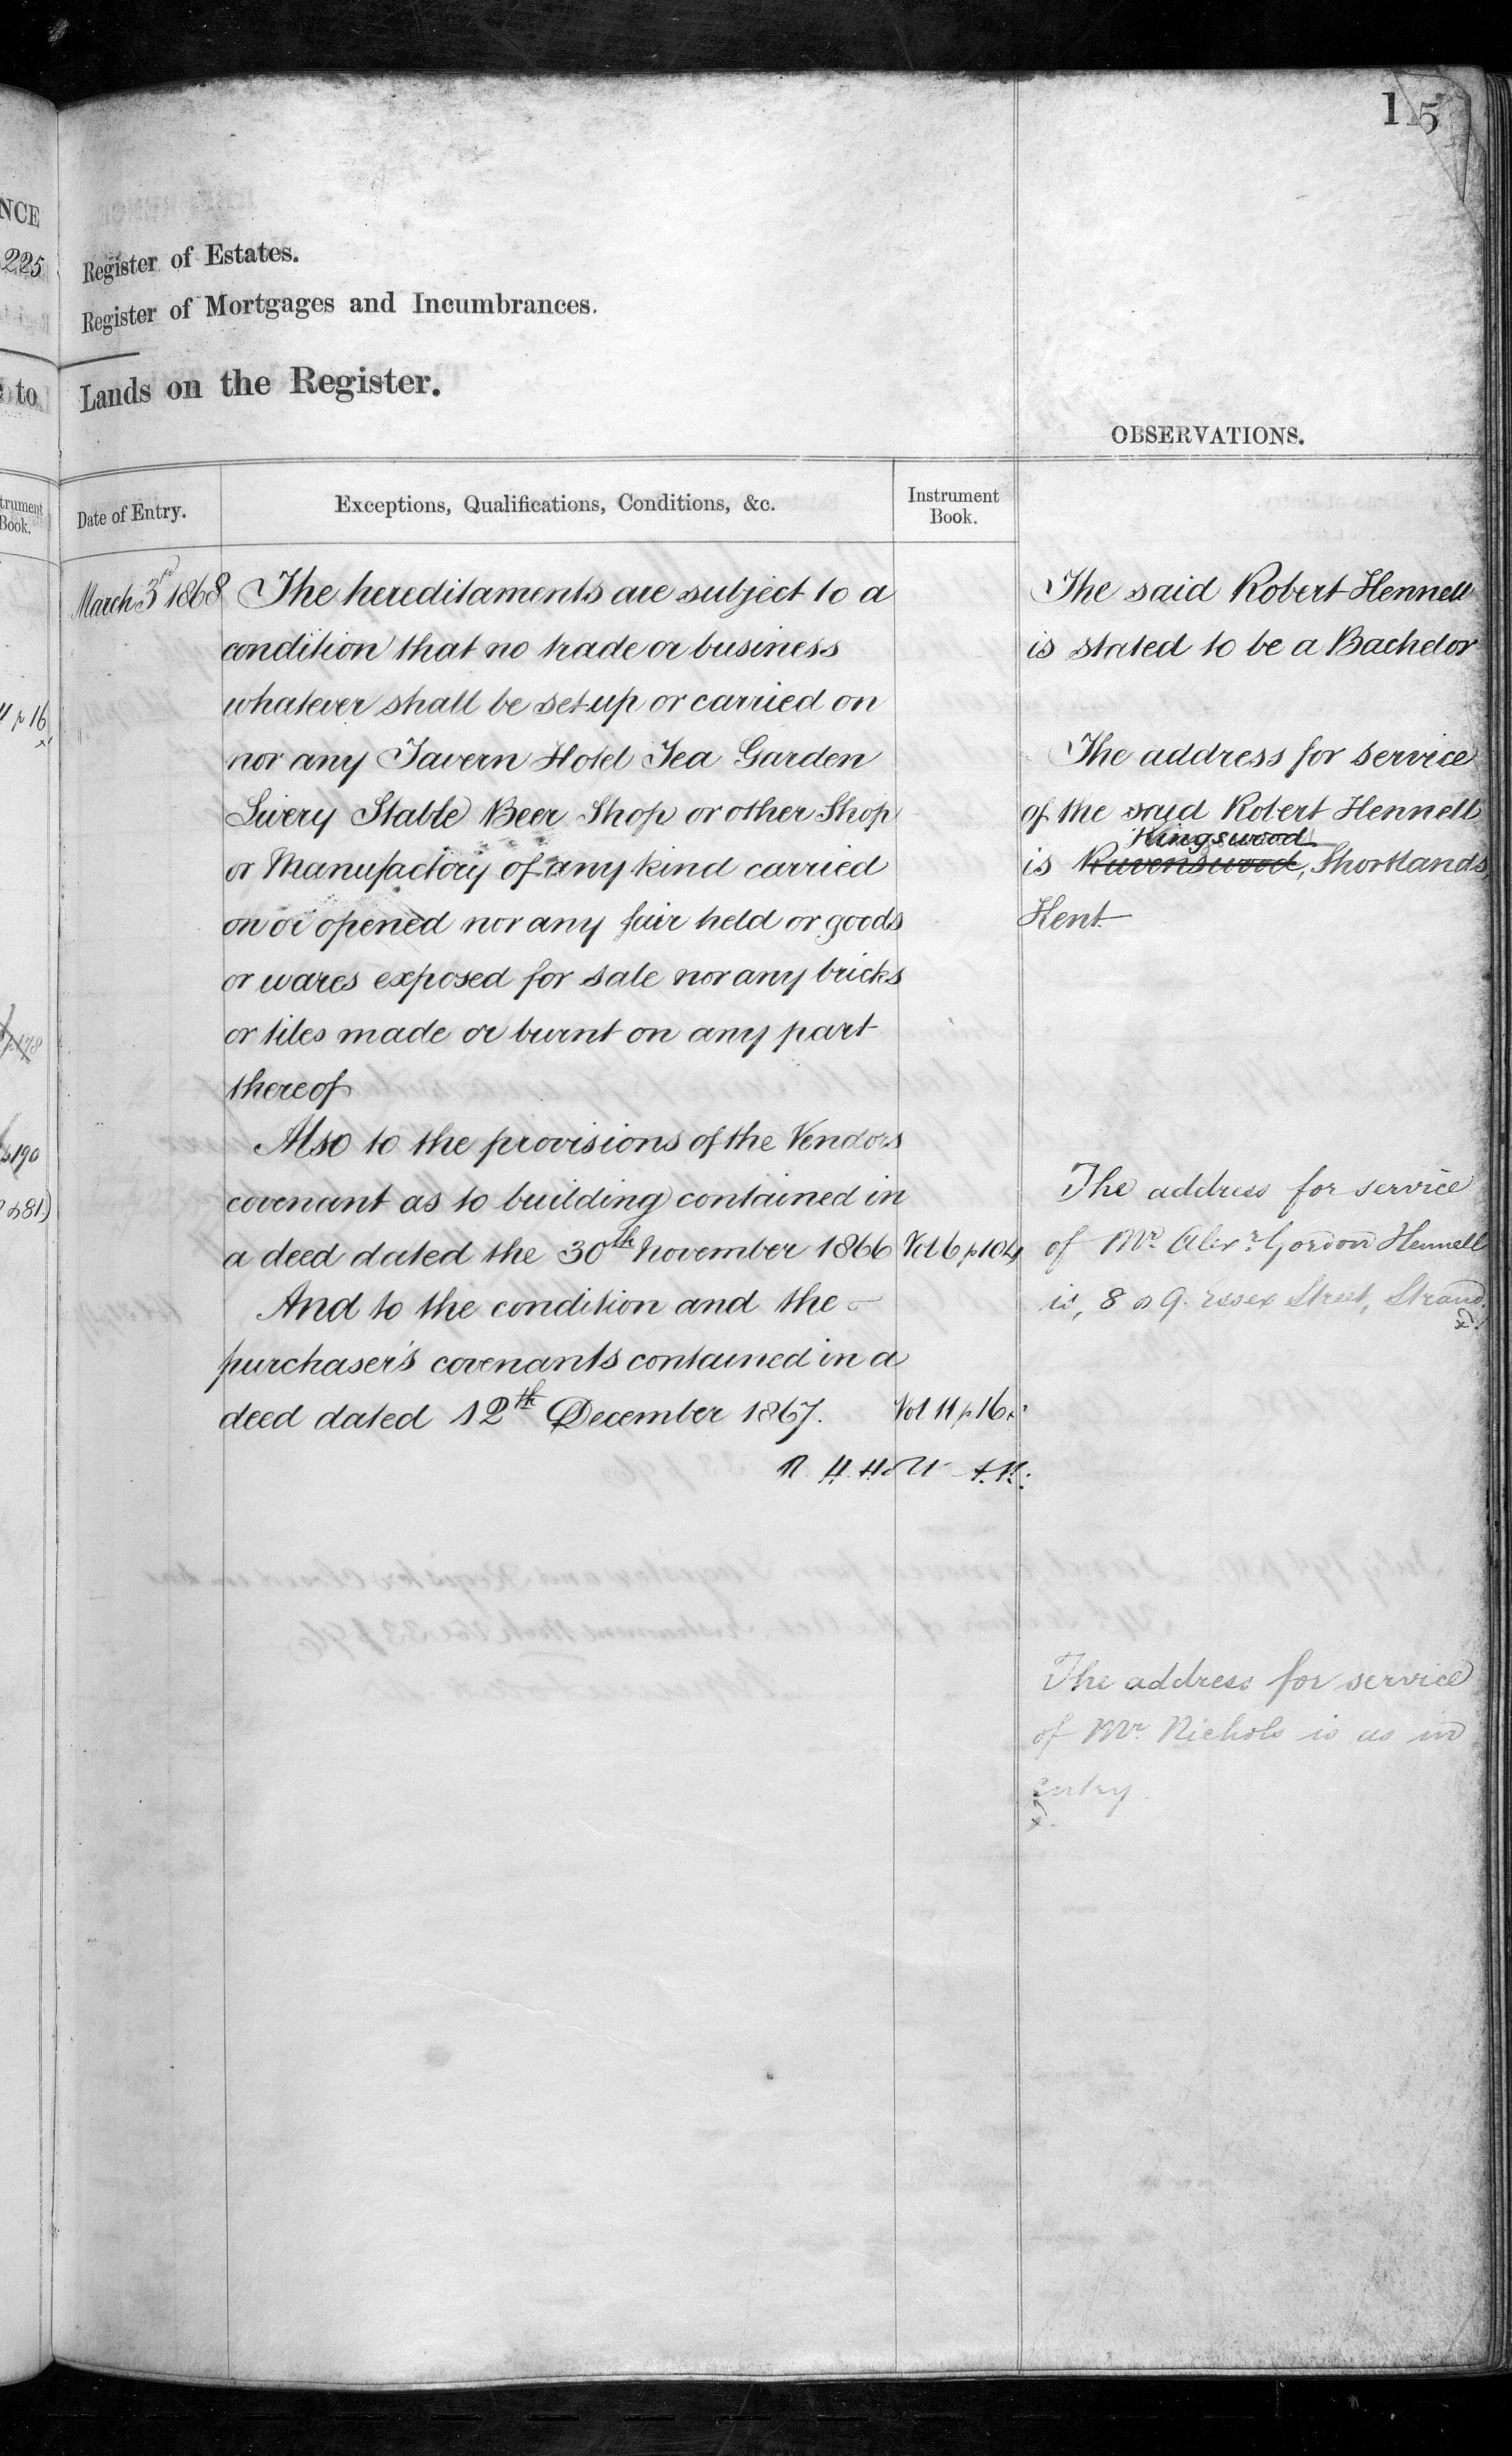 115
NCE
225
Register of Estates.
Register of Mortgages and Incumbrances.
e to
Lands on the Register.
OBSERVATIONS.
trument
Book.
Date of Entry.
Exceptions, Qualifications, Conditions, &c.
Instrument
Book.
March 3rd 1868
The hereditaments are subject to a
condition that no trade or business
whatever shall be set up or carried on
nor any Tavern Hotel Tea Garden
Livery Stable Beer Shop or other Shop
or Manufactory of any kind carried
on or opened nor any fair held or goods
or wares exposed for sale nor any bricks
or tiles made or burnt on any part
thereof
Also to the provisions of the Vendors
covenant as to building contained in
a deed dated the 30th November 1866 Vol 6 p 104
And to the condition and the
purchaser's covenants contained in a
deed dated 12th December 1867. Vol 11 p 16
The said Robert Hennell
is stated to be a Bachelor
The address for service
of the said Robert Hennell
Kingswood
is Ravenswood, Shortlands,
Kent
The address for service
of Mr. Alexr. Gordon Hennell
is, 8 & 9. Essex Street, Strand.
The address for service
of Mr. Nichols is as in
entry.
p 16
p 178
p 190
& 81)